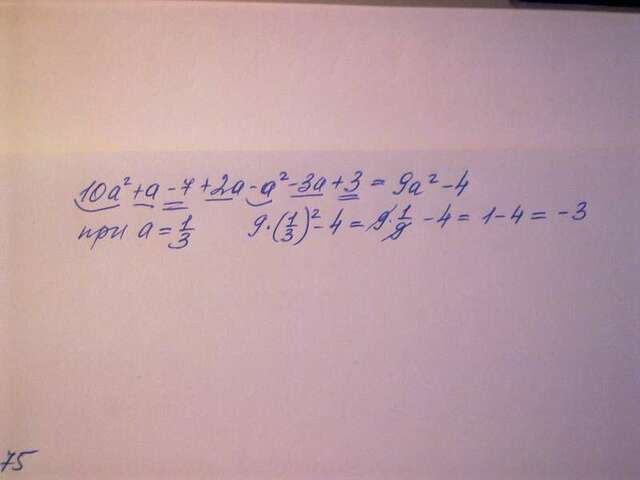 10a² + a - 7 + 2a - a² - 3a + 3 = 9a² - 4
при a = 1/3 9 · (1/3)² - 4 = 9 · 1/9 - 4 = 1 - 4 = -3
75